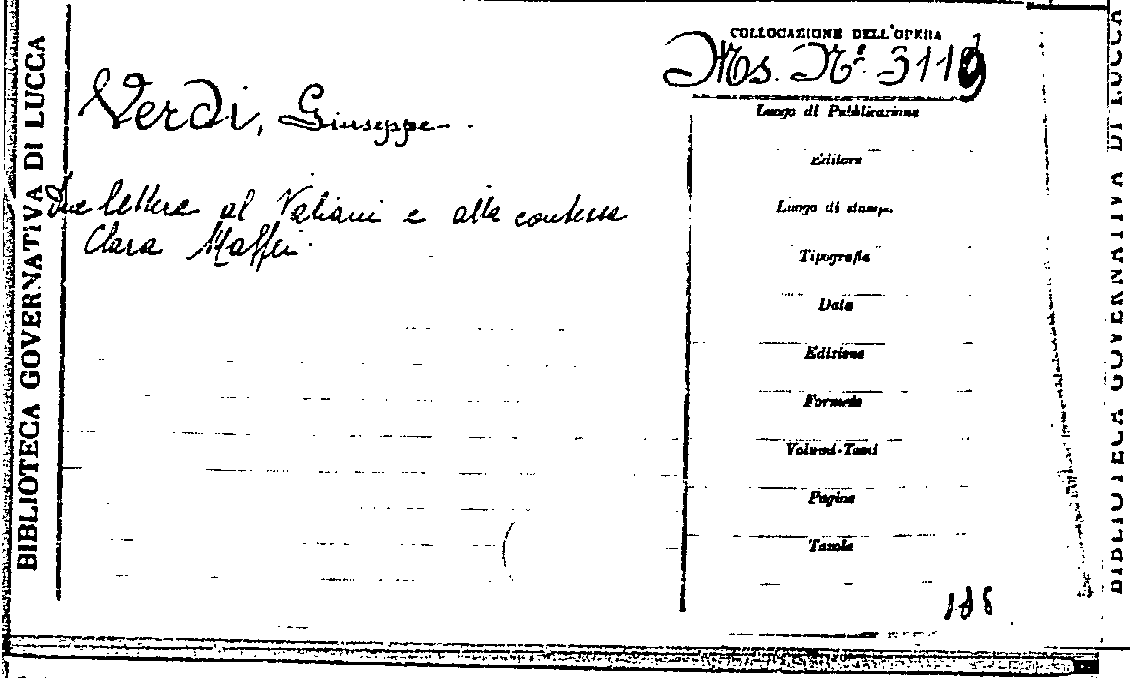 BIBLIOTECA GOVERNATIVA DI LUCCA
Verdi, Giuseppe.
Due lettere al Valiani e alla contessa
Clara Maffei.
COLLOCAZIONE DELL'OPERA
Ms. N.º 3119
Luogo di Pubblicazione
Editore
Luogo di stampa
Tipografia
Data
Edizione
Formato
Volumi-Tomi
Pagine
Tavole
BIBLIOTECA GOVERNATIVA DI LUCCA